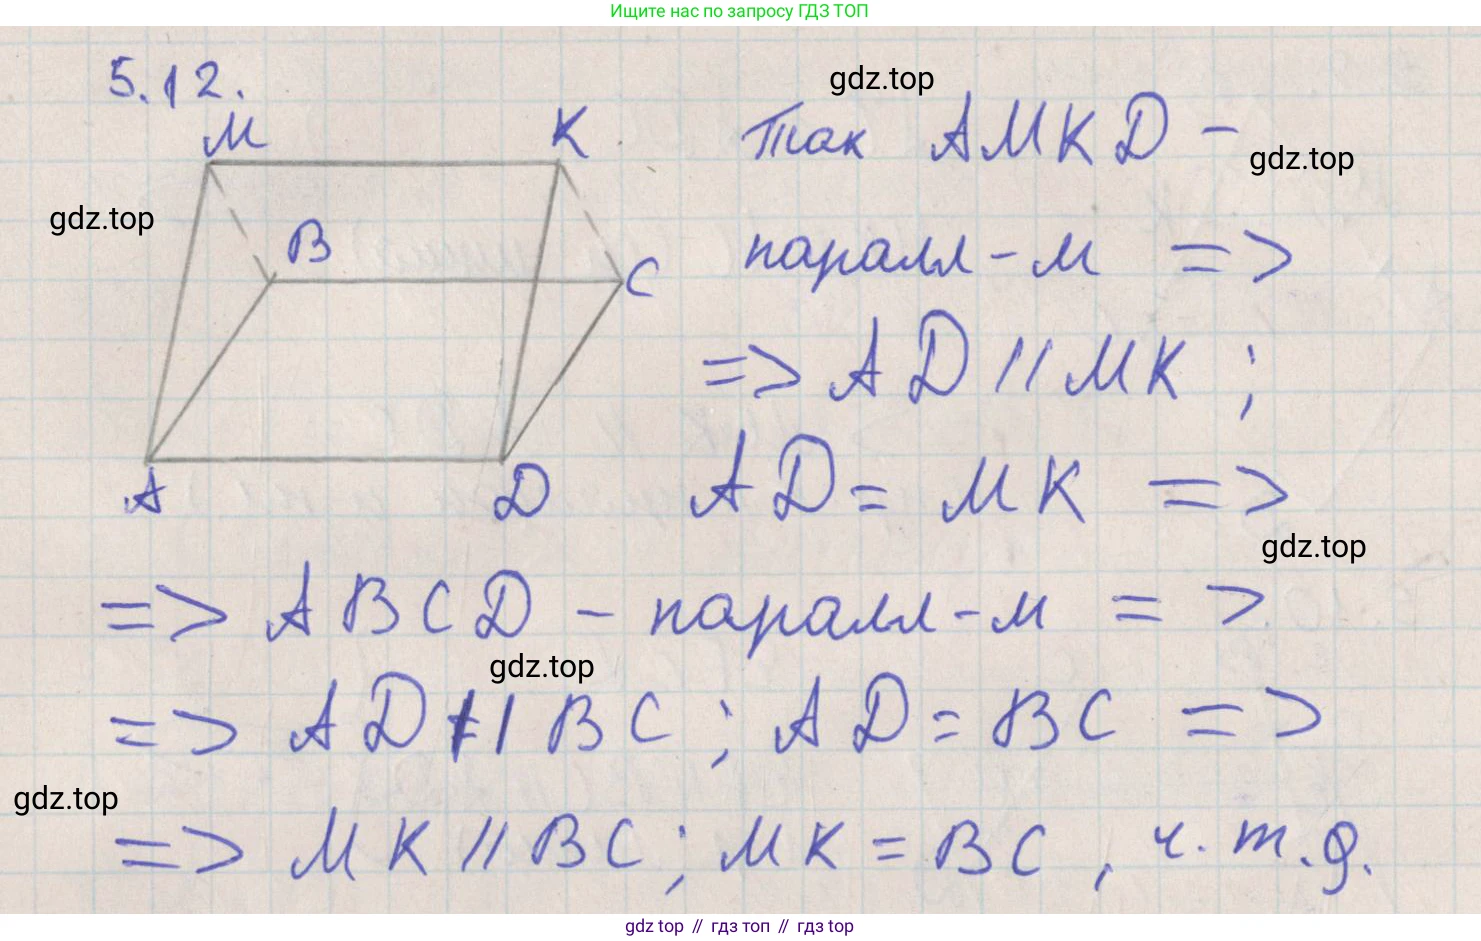 Ищите нас по запросу ГДЗ ТОП
5.12.
gdz.top
M
K
Так AMKD -
gdz.top
gdz.top
B
C
паралл-м =>
=> AD // MK ;
A
D
AD = MK =>
gdz.top
=> ABCD - паралл-м =>
gdz.top
=> AD // BC ; AD = BC =>
gdz.top
=> MK // BC ; MK = BC , ч. т. д.
gdz top // гдз топ // гдз top